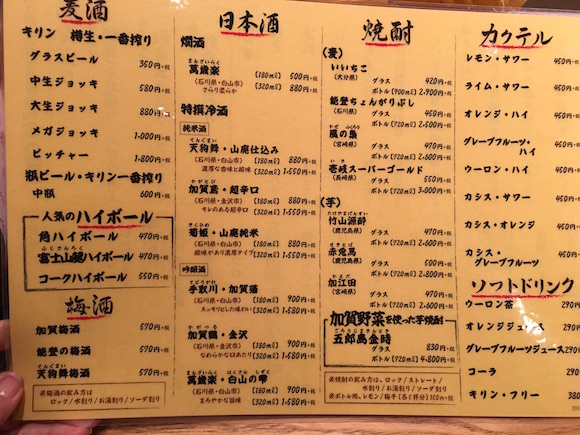 麦酒
キリン 樽生・一番搾り
グラスビール 350円+税
中生ジョッキ 580円+税
大生ジョッキ 880円+税
メガジョッキ 1,000円+税
ピッチャー 1,800円+税
瓶ビール・キリン一番搾り
中瓶 600円+税
人気のハイボール
角ハイボール 470円+税
ふじさんろく
富士山麓ハイボール 490円+税
コークハイボール 550円+税
梅酒
加賀梅酒 570円+税
能登の梅酒 570円+税
てんぐまい
天狗舞梅酒 570円+税
※梅酒の飲み方は
ロック/水割り/お湯割り/ソーダ割り
日本酒
燗酒
まんざいらく
萬歳楽 (180mℓ) 500円+税
(石川県・白山市) (320mℓ) 880円+税
さらり柔らか
特撰冷酒
純米酒
てんぐまい
天狗舞・山廃仕込み
(石川県・白山市) (180mℓ) 880円+税
濃厚な香味と酸味 (320mℓ) 1,550円+税
かがとび
加賀鳶・超辛口
(石川県・金沢市) (180mℓ) 880円+税
キレのある超辛口 (320mℓ) 1,550円+税
きくひめ
菊姫・山廃純米
(石川県・白山市) (180mℓ) 880円+税
酸味があり濃厚タイプ (320mℓ) 1,550円+税
吟醸酒
てどりがわ
手取川・加賀藩
(石川県・白山市) (180mℓ) 900円+税
スッキリとした味わい (320mℓ) 1,580円+税
かがつる
加賀鶴・金沢
(石川県・金沢市) (180mℓ) 900円+税
なめらかな口あたり (320mℓ) 1,580円+税
まんざいらく はくさん しずく
萬歳楽・白山の雫
(石川県・白山市) (180mℓ) 900円+税
まろやかな旨味 (320mℓ) 1,580円+税
焼酎
(麦)
いいちこ
(大分県) グラス 420円+税
ボトル(900mℓ) 2,900円+税
能登ちょんがりぶし
(石川県) グラス 480円+税
ボトル(720mℓ) 2,500円+税
風の梟
(宮崎県) グラス 470円+税
ボトル(720mℓ) 2,600円+税
いき
壱岐スーパーゴールド
(長崎県) グラス 550円+税
ボトル(720mℓ) 3,000円+税
(芋)
たけやまげんすい
竹山源酔
(鹿児島県) グラス 450円+税
ボトル(720mℓ) 2,400円+税
せきとば
赤兎馬
(鹿児島県) グラス 500円+税
ボトル(720mℓ) 2,800円+税
かえだ
加江田
(宮崎県) グラス 470円+税
ボトル(720mℓ) 2,600円+税
加賀野菜を使った芋焼酎
ごろうじまきんとき
五郎島金時
グラス 830円+税
ボトル(720mℓ) 4,800円+税
※焼酎の飲み方は、ロック/ストレート/
水割り/お湯割り/ソーダ割り
※ボトル用、レモン/梅干(各1杯分)150円+税
カクテル
レモン・サワー 450円+税
ライム・サワー 450円+税
オレンジ・ハイ 450円+税
グレープフルーツ・
ハイ 450円+税
ウーロン・ハイ 450円+税
カシス・サワー 450円+税
カシス・オレンジ 450円+税
カシス・
グレープフルーツ 450円+税
ソフトドリンク
ウーロン茶 290円
オレンジジュース 290円
グレープフルーツジュース 290円
コーラ 290円
キリン・フリー 380